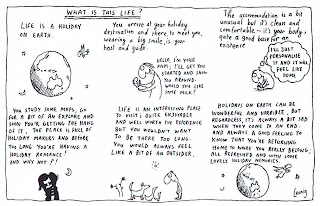 WHAT IS THIS LIFE?
LIFE IS A HOLIDAY
ON EARTH.
You arrive at your holiday
destination and there, to meet you,
wearing a big smile, is your
host and guide.
HELLO, I'M YOUR
HOST; I'LL GET YOU
STARTED AND SHOW
YOU AROUND.
WOULD YOU LIKE
SOME MILK?
The accommodation is a bit
unusual but it's clean and
comfortable - it's your body;
quite a good base for an
existence
I'LL JUST
PERSONALISE
IT AND IT WILL
FEEL LIKE
HOME
YOU STUDY SOME MAPS, GO
FOR A BIT OF AN EXPLORE AND
SOON YOU'RE GETTING THE HANG
OF IT. THE PLACE IS FULL OF
HOLIDAY MAKERS AND BEFORE
TOO LONG YOU'RE HAVING A
HOLIDAY ROMANCE!
AND WHY NOT?!
LIFE IS AN INTERESTING PLACE
TO VISIT; QUITE ENJOYABLE
AND WELL WORTH THE EXPERIENCE
BUT YOU WOULDN'T WANT
TO BE THERE TOO LONG.
YOU WOULD ALWAYS FEEL
LIKE A BIT OF AN OUTSIDER.
HOLIDAYS ON EARTH CAN BE
WONDERFUL AND HORRIBLE BUT
REGARDLESS, IT'S ALWAYS A BIT SAD
WHEN THEY COME TO AN END.
AND ALWAYS A GOOD FEELING TO
KNOW THAT YOU'RE RETURNING
HOME TO WHERE YOU REALLY BELONG;
ALL REFRESHED AND WITH SOME
LOVELY HOLIDAY MEMORIES.
Leunig